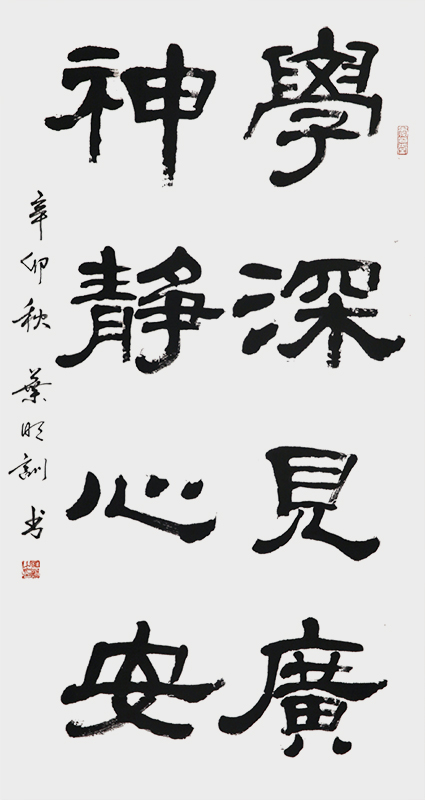 學深見廣
神靜心安
辛卯秋 葉明訓书